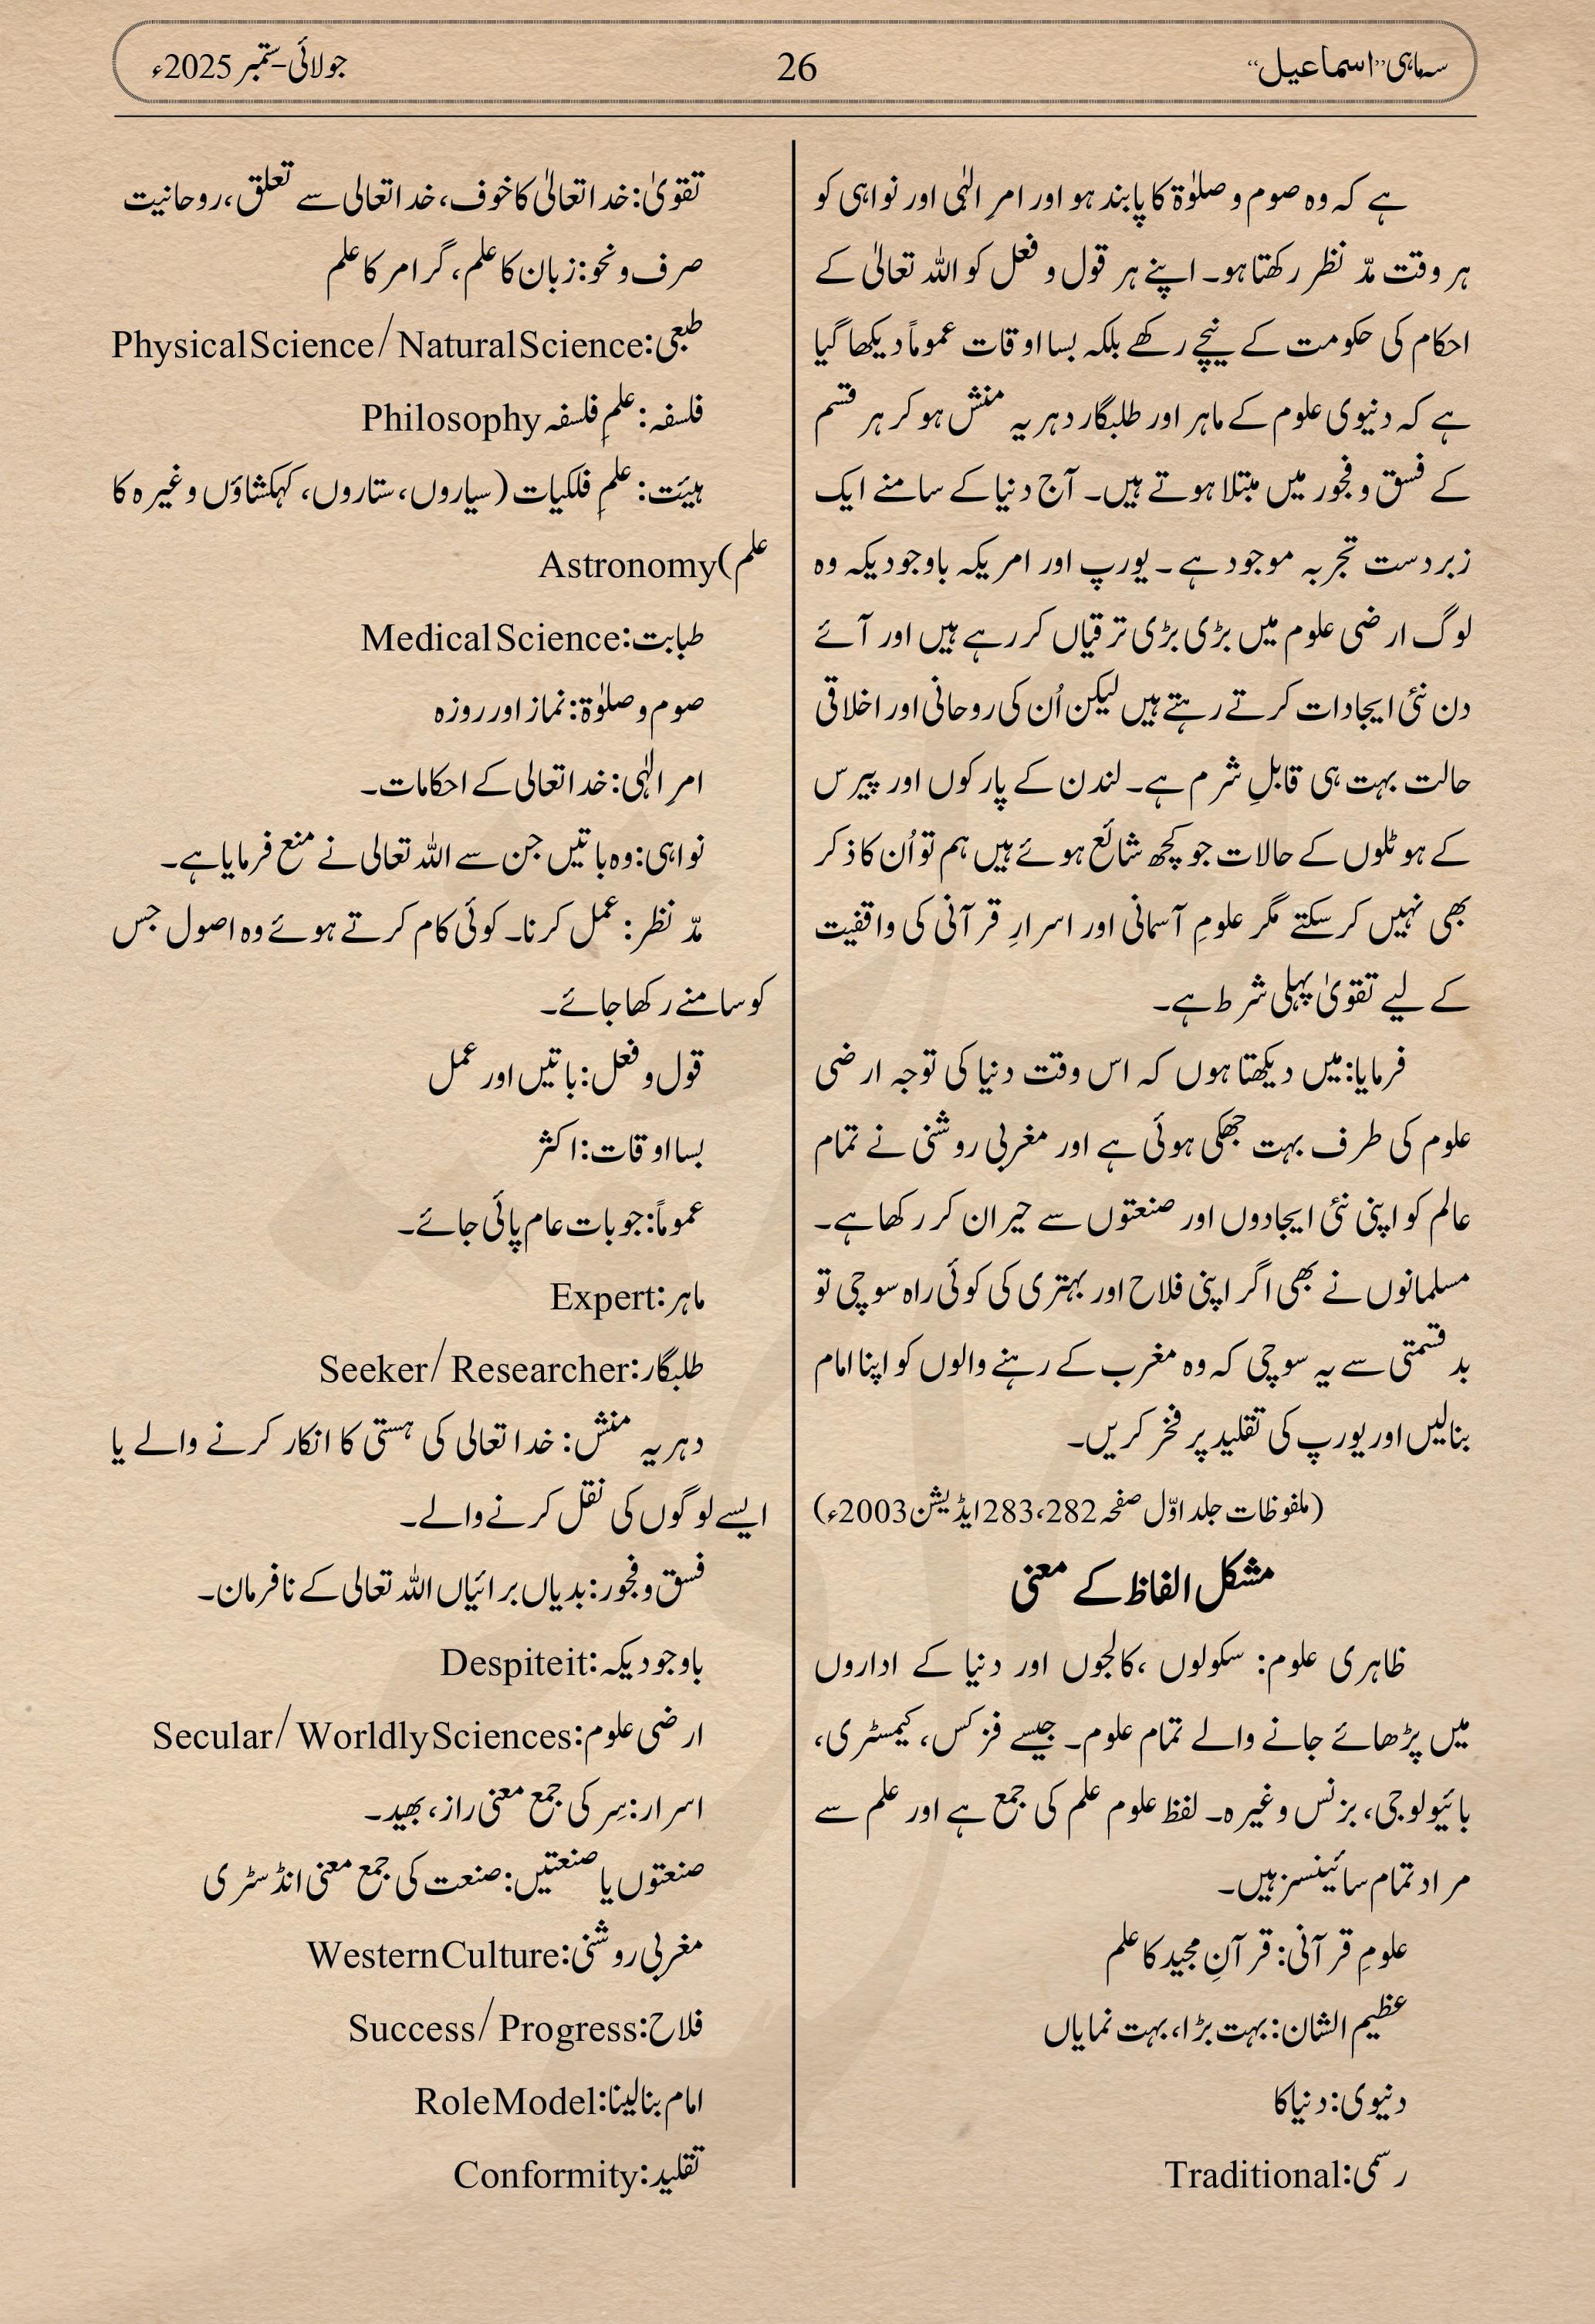 سہ ماہی ”اسماعیل“
26
جولائی-ستمبر 2025ء
ہے کہ وہ صوم و صلوٰۃ کا پابند ہو اور امرِ الٰہی اور نواہی کو
ہر وقت مدّ نظر رکھتا ہو۔ اپنے ہر قول و فعل کو اللہ تعالیٰ کے
احکام کی حکومت کے نیچے رکھے بلکہ بسا اوقات عموماً دیکھا گیا
ہے کہ دنیوی علوم کے ماہر اور طلبگار دہریہ منش ہو کر ہر قسم
کے فسق و فجور میں مبتلا ہوتے ہیں۔ آج دنیا کے سامنے ایک
زبردست تجربہ موجود ہے۔ یورپ اور امریکہ باوجودیکہ وہ
لوگ ارضی علوم میں بڑی بڑی ترقیاں کر رہے ہیں اور آئے
دن نئی ایجادات کرتے رہتے ہیں لیکن اُن کی روحانی اور اخلاقی
حالت بہت ہی قابلِ شرم ہے۔ لندن کے پارکوں اور پیرس
کے ہوٹلوں کے حالات جو کچھ شائع ہوئے ہیں ہم تو اُن کا ذکر
بھی نہیں کر سکتے مگر علومِ آسمانی اور اسرارِ قرآنی کی واقفیت
کے لیے تقویٰ پہلی شرط ہے۔
فرمایا: میں دیکھتا ہوں کہ اس وقت دنیا کی توجہ ارضی
علوم کی طرف بہت جھکی ہوئی ہے اور مغربی روشنی نے تمام
عالم کو اپنی نئی ایجادوں اور صنعتوں سے حیران کر رکھا ہے۔
مسلمانوں نے بھی اگر اپنی فلاح اور بہتری کی کوئی راہ سوچی تو
بد قسمتی سے یہ سوچی کہ وہ مغرب کے رہنے والوں کو اپنا امام
بنالیں اور یورپ کی تقلید پر فخر کریں۔
(ملفوظات جلد اوّل صفحہ 282، 283 ایڈیشن 2003ء)
مشکل الفاظ کے معنی
ظاہری علوم: سکولوں ،کالجوں اور دنیا کے اداروں
میں پڑھائے جانے والے تمام علوم۔ جیسے فزکس، کیمسٹری،
بائیولوجی، بزنس وغیرہ۔ لفظ علوم علم کی جمع ہے اور علم سے
مراد تمام سائینسز ہیں۔
علومِ قرآنی: قرآنِ مجید کا علم
عظیم الشان: بہت بڑا، بہت نمایاں
دنیوی: دنیا کا
رسمی: Traditional
تقویٰ: خدا تعالیٰ کا خوف، خدا تعالی سے تعلق، روحانیت
صرف و نحو: زبان کا علم، گرامر کا علم
طبعی: Physical Science/ Natural Science
فلسفہ: علمِ فلسفہ Philosophy
ہیئت: علمِ فلکیات (سیاروں، ستاروں، کہکشاؤں وغیرہ کا
علم) Astronomy
طبابت: Medical Science
صوم و صلوٰۃ: نماز اور روزہ
امرِ الٰہی: خدا تعالی کے احکامات۔
نواہی: وہ باتیں جن سے اللہ تعالی نے منع فرمایا ہے۔
مدّ نظر: عمل کرنا۔ کوئی کام کرتے ہوئے وہ اصول جس
کو سامنے رکھا جائے۔
قول و فعل: باتیں اور عمل
بسا اوقات: اکثر
عموماً: جو بات عام پائی جائے۔
ماہر: Expert
طلبگار: Seeker/ Researcher
دہریہ منش: خدا تعالی کی ہستی کا انکار کرنے والے یا
ایسے لوگوں کی نقل کرنے والے۔
فسق و فجور: بدیاں برائیاں اللہ تعالی کے نافرمان۔
باوجودیکہ: Despite it
ارضی علوم: Secular/ Worldly Sciences
اسرار: سِر کی جمع معنی راز، بھید۔
صنعتوں یا صنعتیں: صنعت کی جمع معنی انڈسٹری
مغربی روشنی: Western Culture
فلاح: Success/ Progress
امام بنا لینا: Role Model
تقلید: Conformity